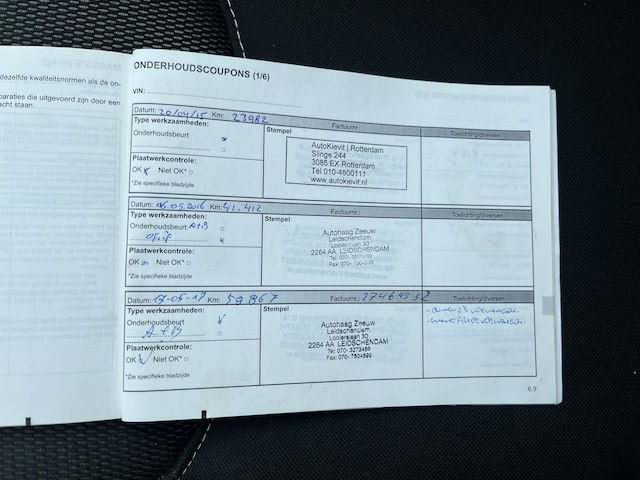 dezelfde kwaliteitsnormen als de on-
paraties die uitgevoerd zijn door een
acht staan.
ONDERHOUDSCOUPONS (1/6)
VIN:
Datum: 20/04/15 Km: 23982 Factuurnr.: Toelichting/diversen
Type werkzaamheden: Stempel
Onderhoudsbeurt
AutoKievit | Rotterdam
Slinge 244
3085 EX Rotterdam
Tel.010-4800111
www.autokievit.nl
Plaatwerkcontrole:
OK Niet OK*
*Zie specifieke bladzijde
Datum: 06.05.2016 Km: 41.412 Factuurnr.: Toelichting/diversen
Type werkzaamheden: Stempel
Onderhoudsbeurt A+B
Autohaag Zeeuw
Leidschendam
Looierslaan 30
2264 AA LEIDSCHENDAM
Tel: 070- 3273456
Fax: 070-
Plaatwerkcontrole:
OK Niet OK*
*Zie specifieke bladzijde
Datum: 17-05-17 Km: 59867 Factuurnr.: 27464552 Toelichting/diversen
Type werkzaamheden: Stempel
Onderhoudsbeurt
A+B
Autohaag Zeeuw
Leidschendam
Looierslaan 30
2264 AA LEIDSCHENDAM
Tel: 070- 3273456
Fax: 070- 7504599
VERVANGEN.
VERVANGEN.
Plaatwerkcontrole:
OK Niet OK*
*Zie specifieke bladzijde
6.9